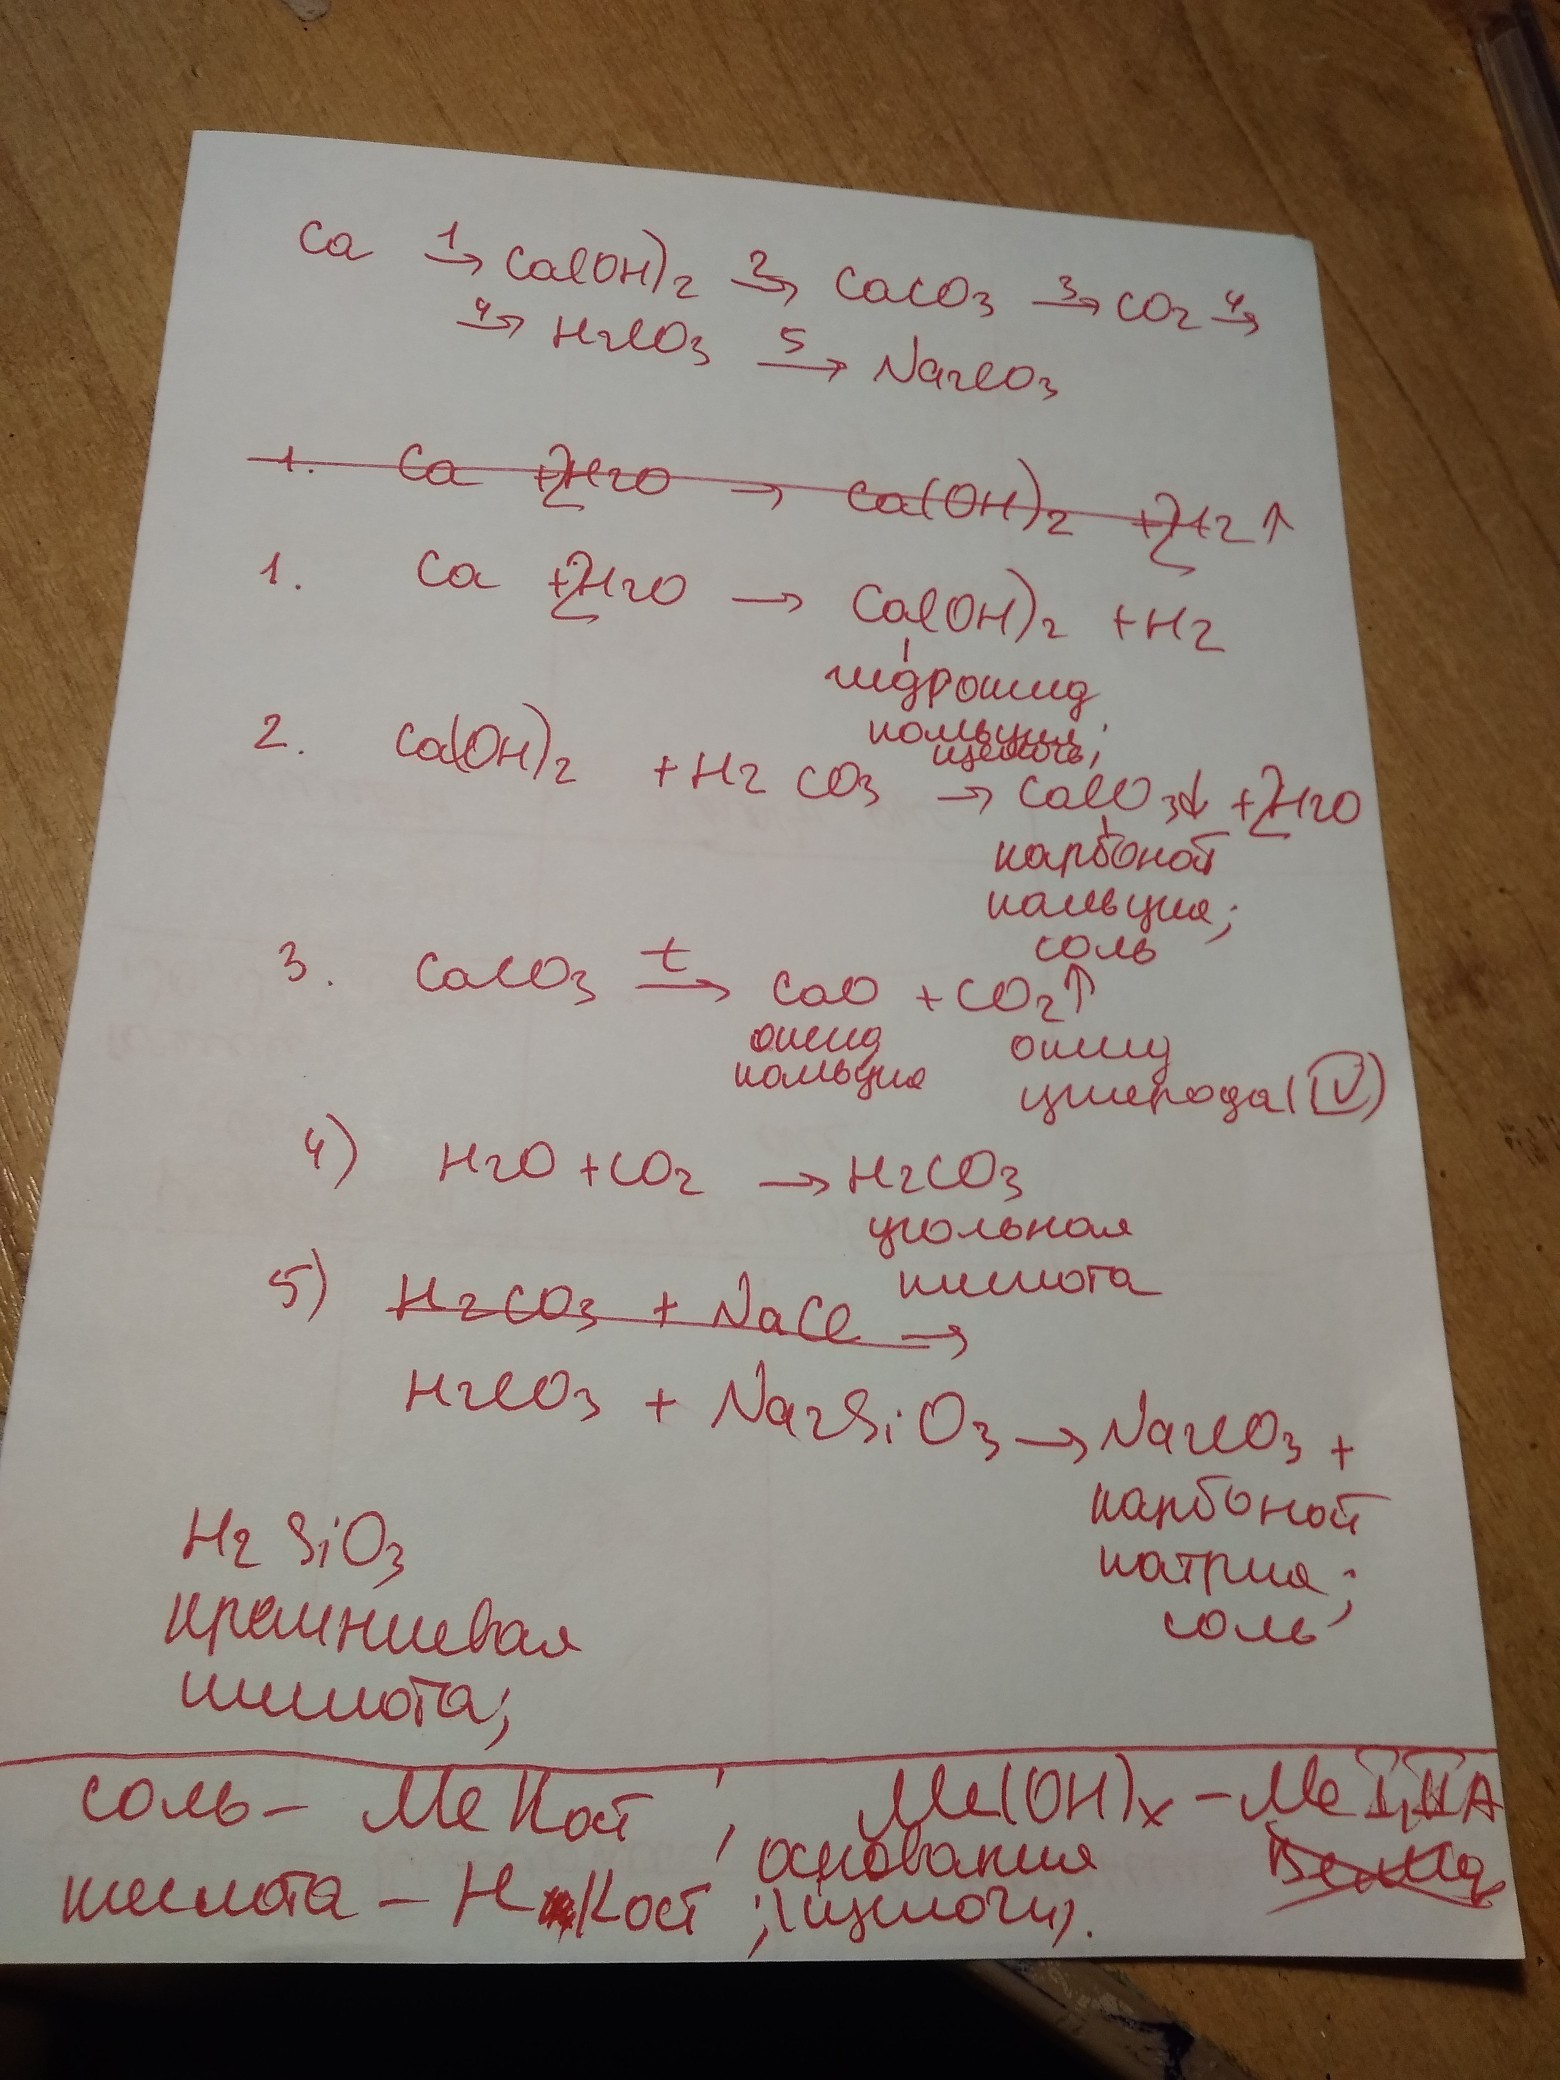 Ca 1→ Ca(OH)2 2→ CaCO3 3→ CO2 4→
4→ H2CO3 5→ Na2CO3
1. Ca + 2H2O → Ca(OH)2 + 2H2↑
1. Ca + 2H2O → Ca(OH)2 + H2
гидроксид
кальция;
щелочь;
2. Ca(OH)2 + H2CO3 → CaCO3↓ + 2H2O
карбонат
кальция;
соль
3. CaCO3 t→ CaO + CO2↑
оксид кальция
оксид углерода (IV)
4) H2O + CO2 → H2CO3
угольная
кислота
5) H2CO3 + NaCl →
H2CO3 + Na2SiO3 → Na2CO3 +
карбонат
натрия;
соль
H2SiO3
кремниевая
кислота;
соль – МеКост; Ме(ОН)x – Ме I, II А
кислота – Н Кост; основания
(щелочи).